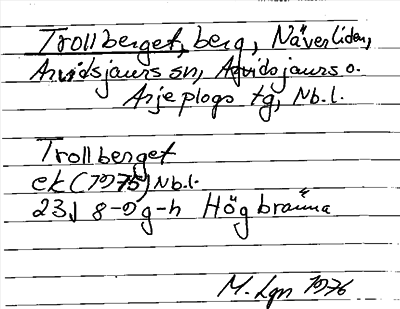 Trollberget, berg, Näverliden,
Arvidsjaurs sn, Arvidsjaurs o.
Arjeplogs tg, Nb.l.
Trollberget
ek (1975) Nb.l.
23J 8-9 g-h Högbränna
M. Lgn 1976